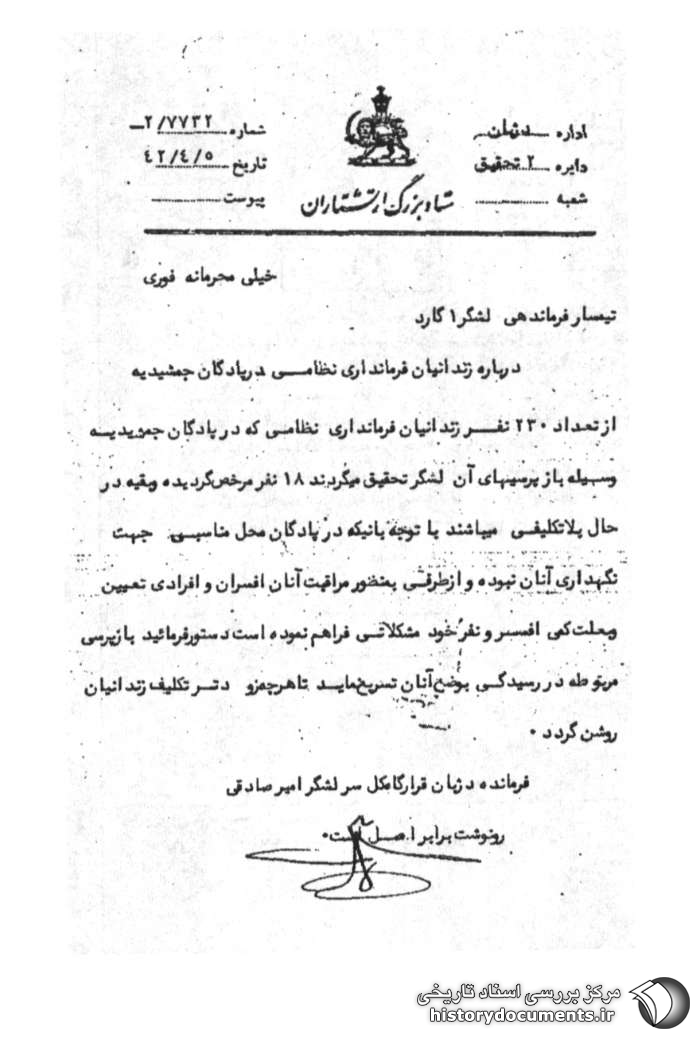 اداره دژبان
دایره ۲ تحقیق
شعبه
شماره ۲/۷۷۳۲ـ
تاریخ ۴۲/۴/۵
پیوست
شاه بزرگ ارتشتاران
خیلی محرمانه فوری
تیمسار فرماندهی لشگر ۱ گارد
درباره زندانیان فرمانداری نظامی در پادگان جمشیدیه
از تعداد ۲۳۰ نفر زندانیان فرمانداری نظامی که در پادگان جمشیدیه
وسیله بازپرسیهای آن لشگر تحقیق میگردند ۱۸ نفر مرخص گردیده و بقیه در
حال بلاتکلیفی میباشند با توجه باینکه در پادگان محل مناسبی جهت
نگهداری آنان نبوده و ازطرفی بمنظور مراقبت آنان افسران و افرادی تعیین
وبعلت کمی افسر و نفر خود مشکلاتی فراهم نموده است دستورفرمائید بازپرسی
مربوطه در رسیدگی بوضع آنان تسریع نماید تا هرچه زودتر تکلیف زندانیان
روشن گردد ۰
فرمانده دژبان قرارگاه کل سر لشگر امیر صادقی
رونوشت برابر اصل است۰
مرکز بررسی اسناد تاریخی
historydocuments.ir